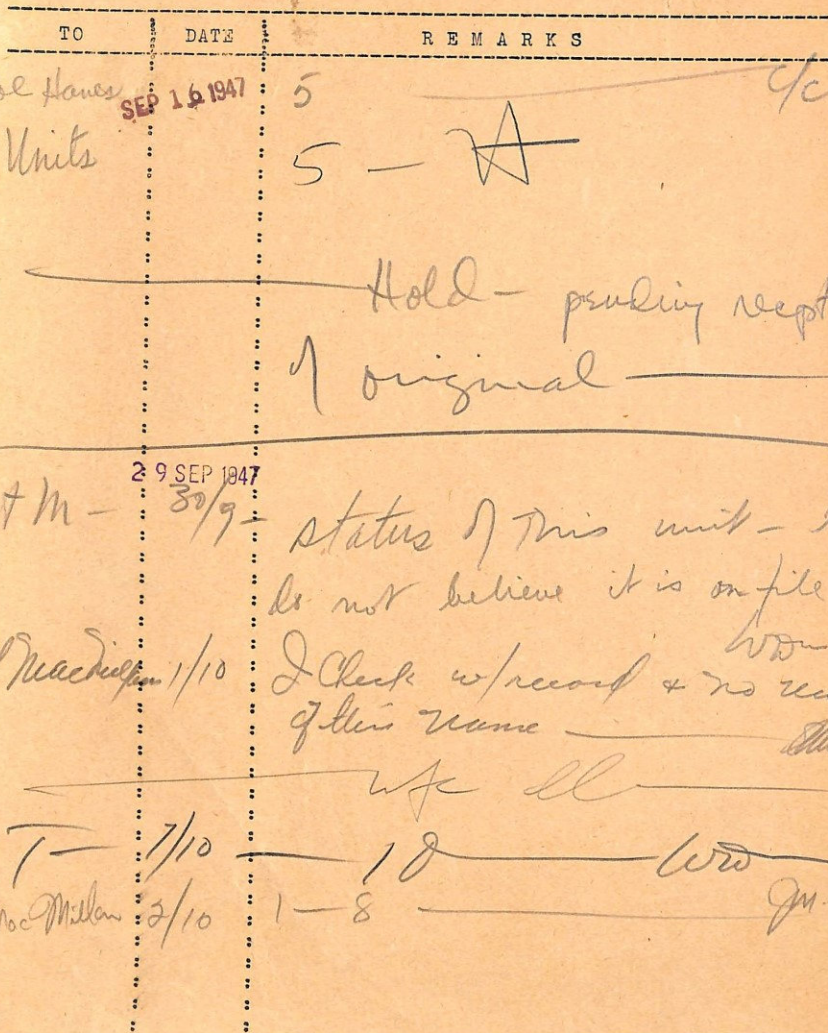 TO DATE REMARKS
SEP 16 1947 5 c/c
Units 5 —
Hold - pending
of original
29 SEP 1947
M - 30/9 - status of this unit -
do not believe it is on file
1/10 I Check w/record & no
of this name
T - 7/10 10
MacMillan 2/10 1 - 8